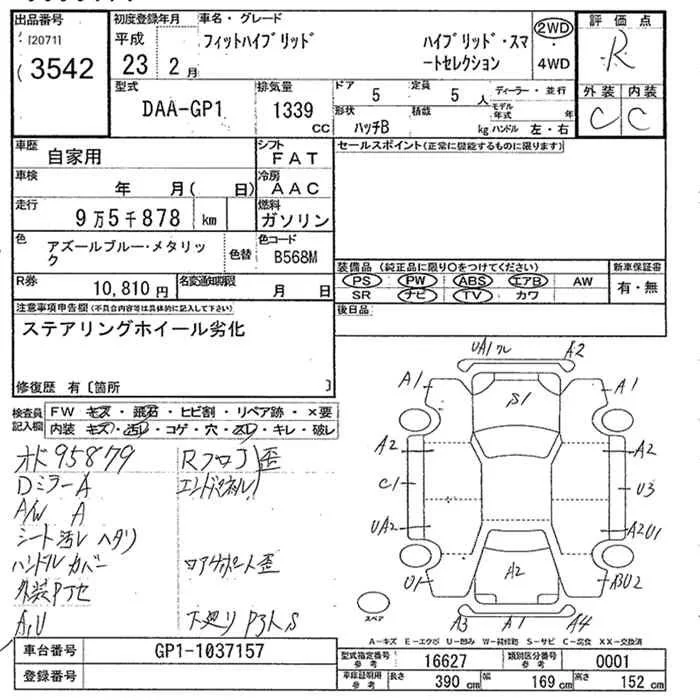 出品番号
(20711
3542
初度登録年月
平成
23 2月
車名・グレード
フィットハイブリッド
ハイブリッド・スマ
ートセレクション
2WD
4WD
評価点
R
外装 内装
C C
型式
DAA-GP1
排気量
1339
cc
ドア
5
定員
5人
形状
ハッチB
積載
kg
ディーラー・並行
モデル年式 年
ハンドル 左・右
車歴
自家用
シフト
FAT
車検
年 月( 日)
冷房
AAC
走行
9万5千878 km
燃料
ガソリン
色
アズールブルー・メタリッ
ク
色替
色コード
B568M
R券
10,810円
名変通知期限
月 日
セールスポイント(正常に機能するものに限ります)
装備品 (純正品に限り○をつけてください)
PS PW ABS エアB AW
SR ナビ TV カワ
新車保証書
有・無
後日品
注意事項申告欄(不具合内容等は具体的に記入して下さい)
ステアリングホイール劣化
修復歴 有〔箇所 〕
検査員
記入欄
FW キズ・飛石・ヒビ割・リペア跡・×要
内装 キズ・汚レ・コゲ・穴・スレ・キレ・破レ
オド95879
Dミラー A
A/W A
シート汚レ ヘタリ
ハンドルカバー
A,U
Rフロア歪
エンドパネルU
下廻りP3ケS
UA1 ワレ A2
A1 S1 A1
A2 A2
C1 U3
UA2 A2U1
U1 A2 BU2
A3 A1 A4
スペア
A-キズ E-エクボ U-凹み W-補修跡 S-サビ C-腐食 XX-交換済
車台番号
GP1-1037157
登録番号
型式指定番号
参考
16627
類別区分番号
参考
0001
車庫証明用
参考
長さ
390 cm
幅
169 cm
高さ
152 cm